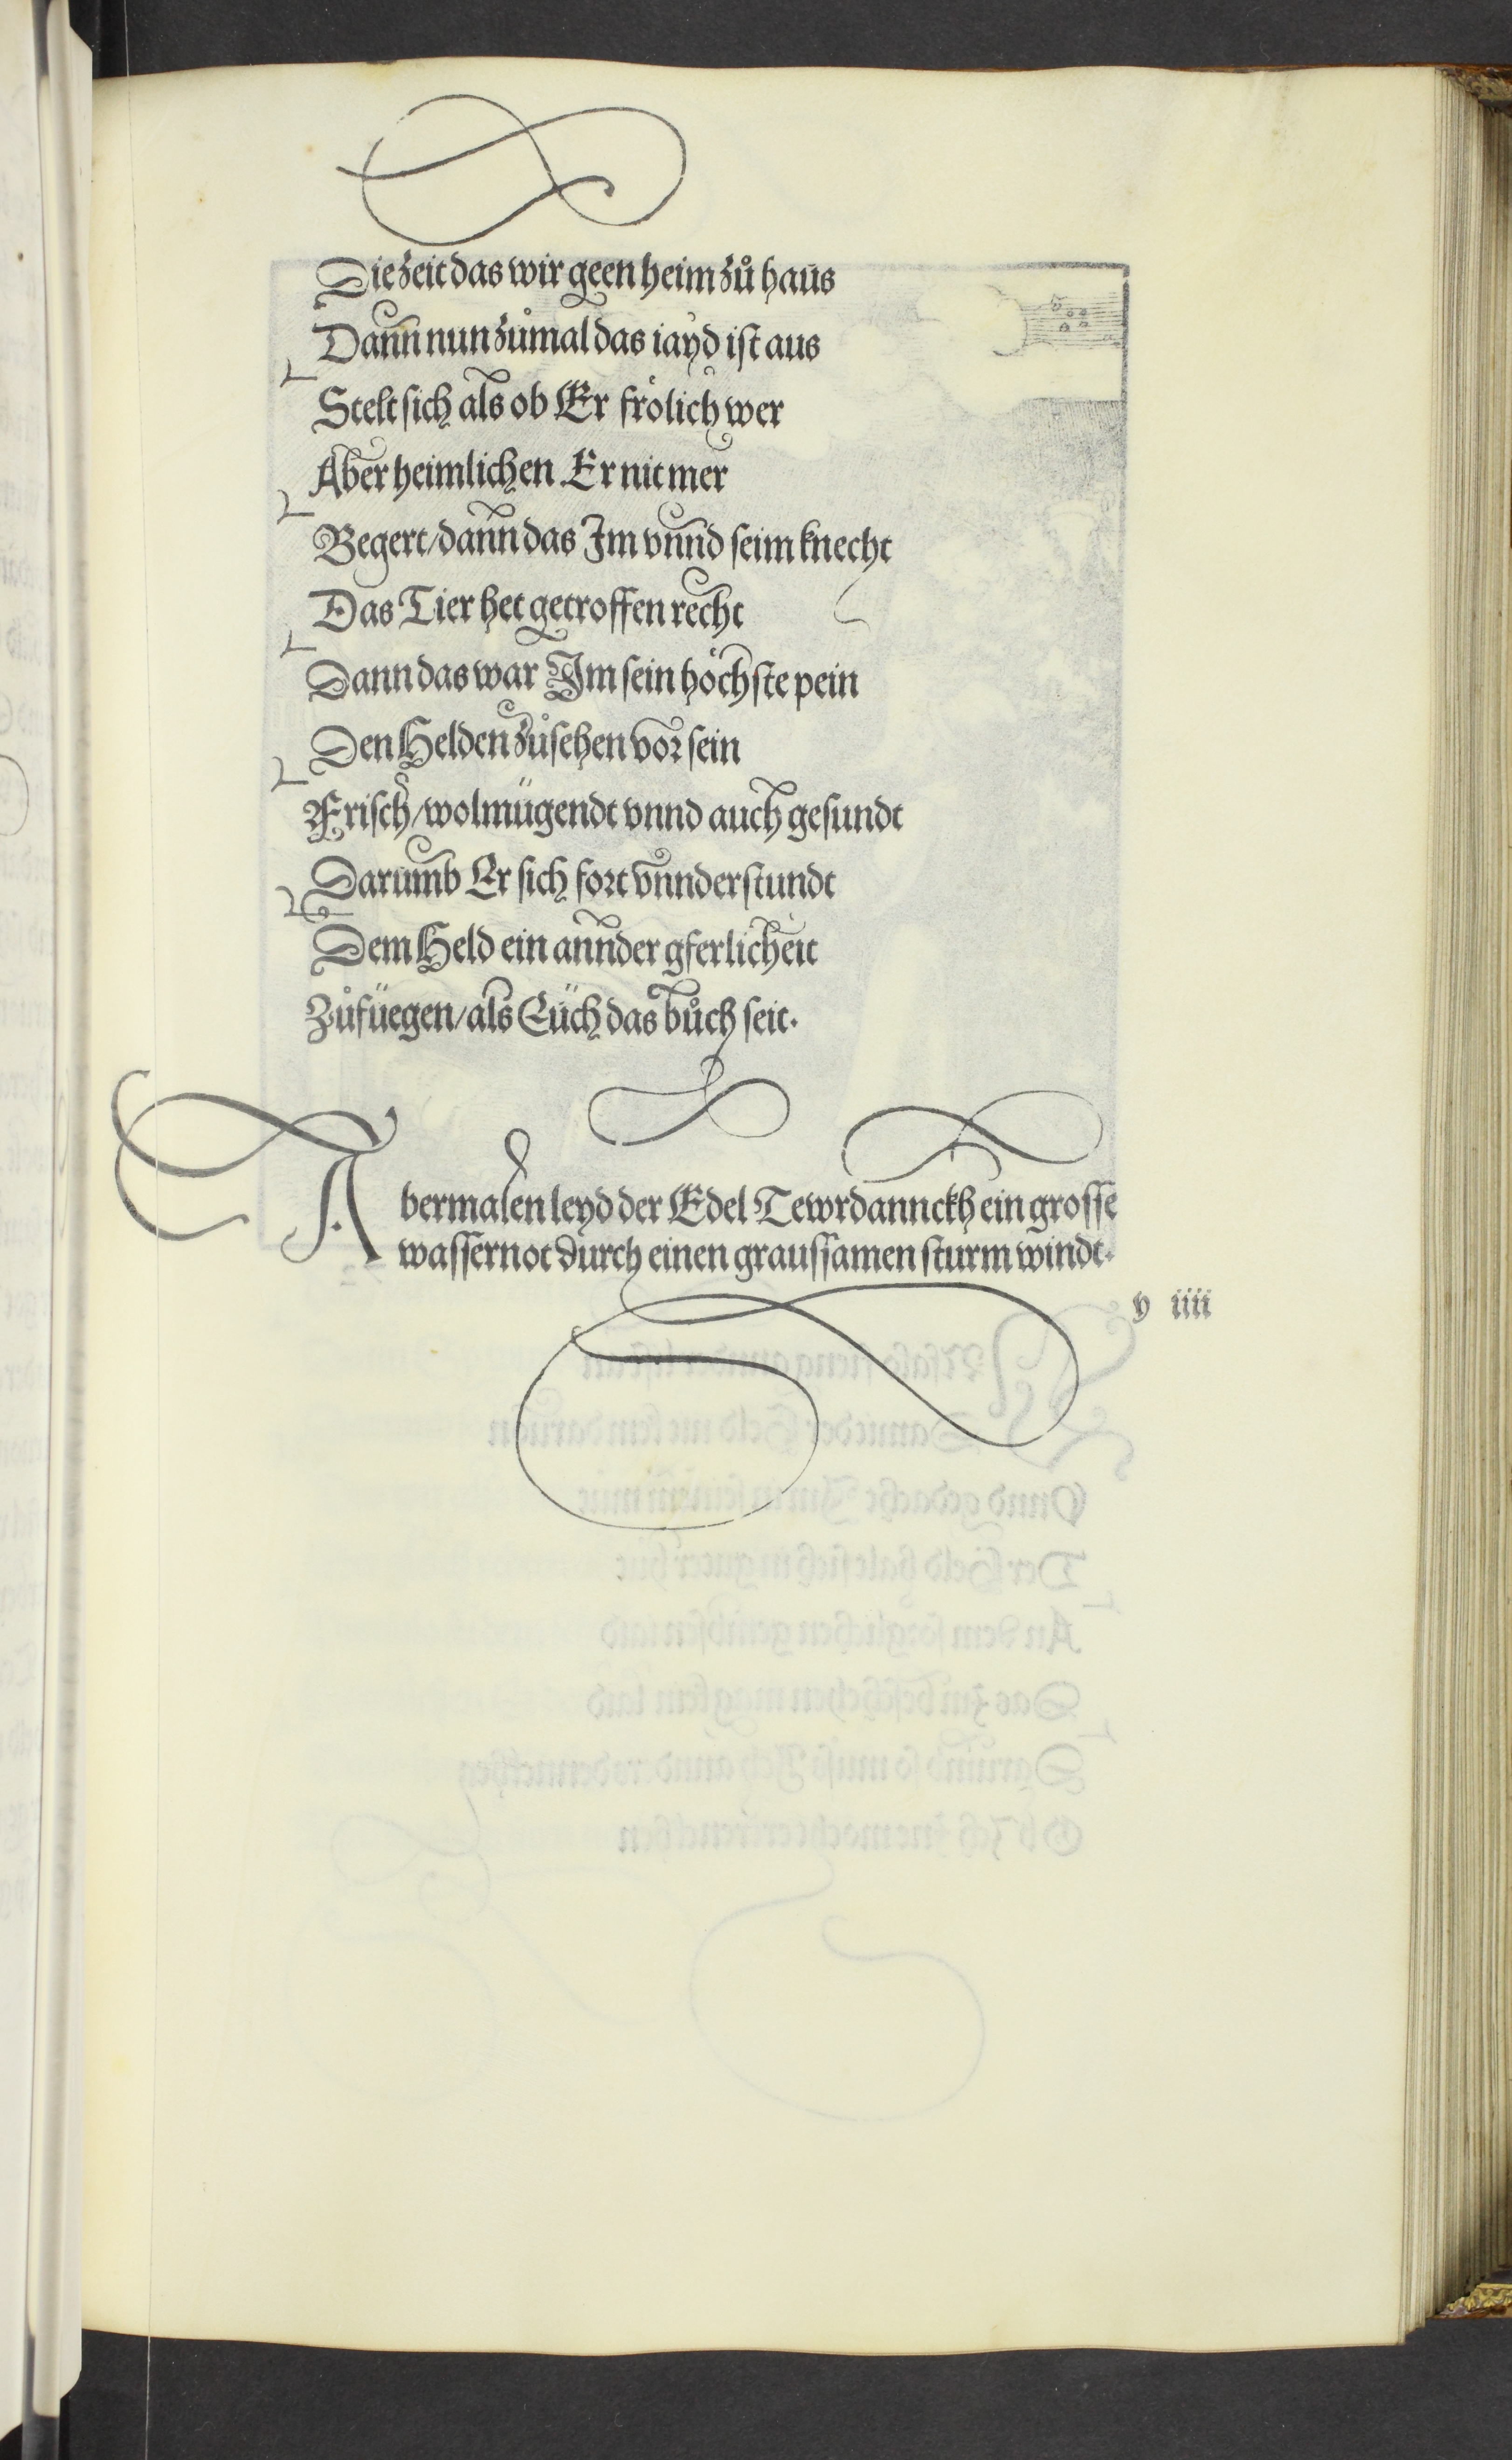 Die zeit das wir geen heim zů haus
Dann nun zůmal das iayd ist aus
Stelt sich als ob Er frölich wer
Aber heimlichen Er nit mer
Begert/dann das Im vnnd seim knecht
Das Tier het getroffen recht
Dann das war Im sein höchste pein
Den Helden zůsehen vor sein
Frisch/wolmügendt vnnd auch gesundt
Darumb Er sich fort vnnderstundt
Dem Held ein annder gferlicheit
Zůfüegen/als Eüch das bůch seit.
Abermalen leyd der Edel Tewrdannckh ein grosse
wassernot durch einen graussamen sturm windt.
y iiii